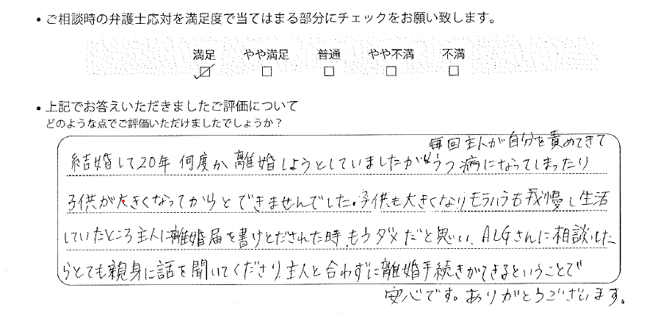 ・ご相談時の弁護士応対を満足度で当てはまる部分にチェックをお願い致します。
満足 やや満足 普通 やや不満 不満
・上記でお答えいただきましたご評価について
どのような点でご評価いただけましたでしょうか？
毎回主人が自分を責めてきて
結婚して20年 何度か離婚しようとしていましたが うつ病になってしまったり
子供が大きくなってからとできませんでした。子供も大きくなりモラハラも我慢し生活
していたところ主人に離婚届を書けとだされた時、もうダメだと思い、ALGさんに相談した
らとても親身に話を聞いてくださり主人と合わずに離婚手続きができるということで
安心です。ありがとうございます。